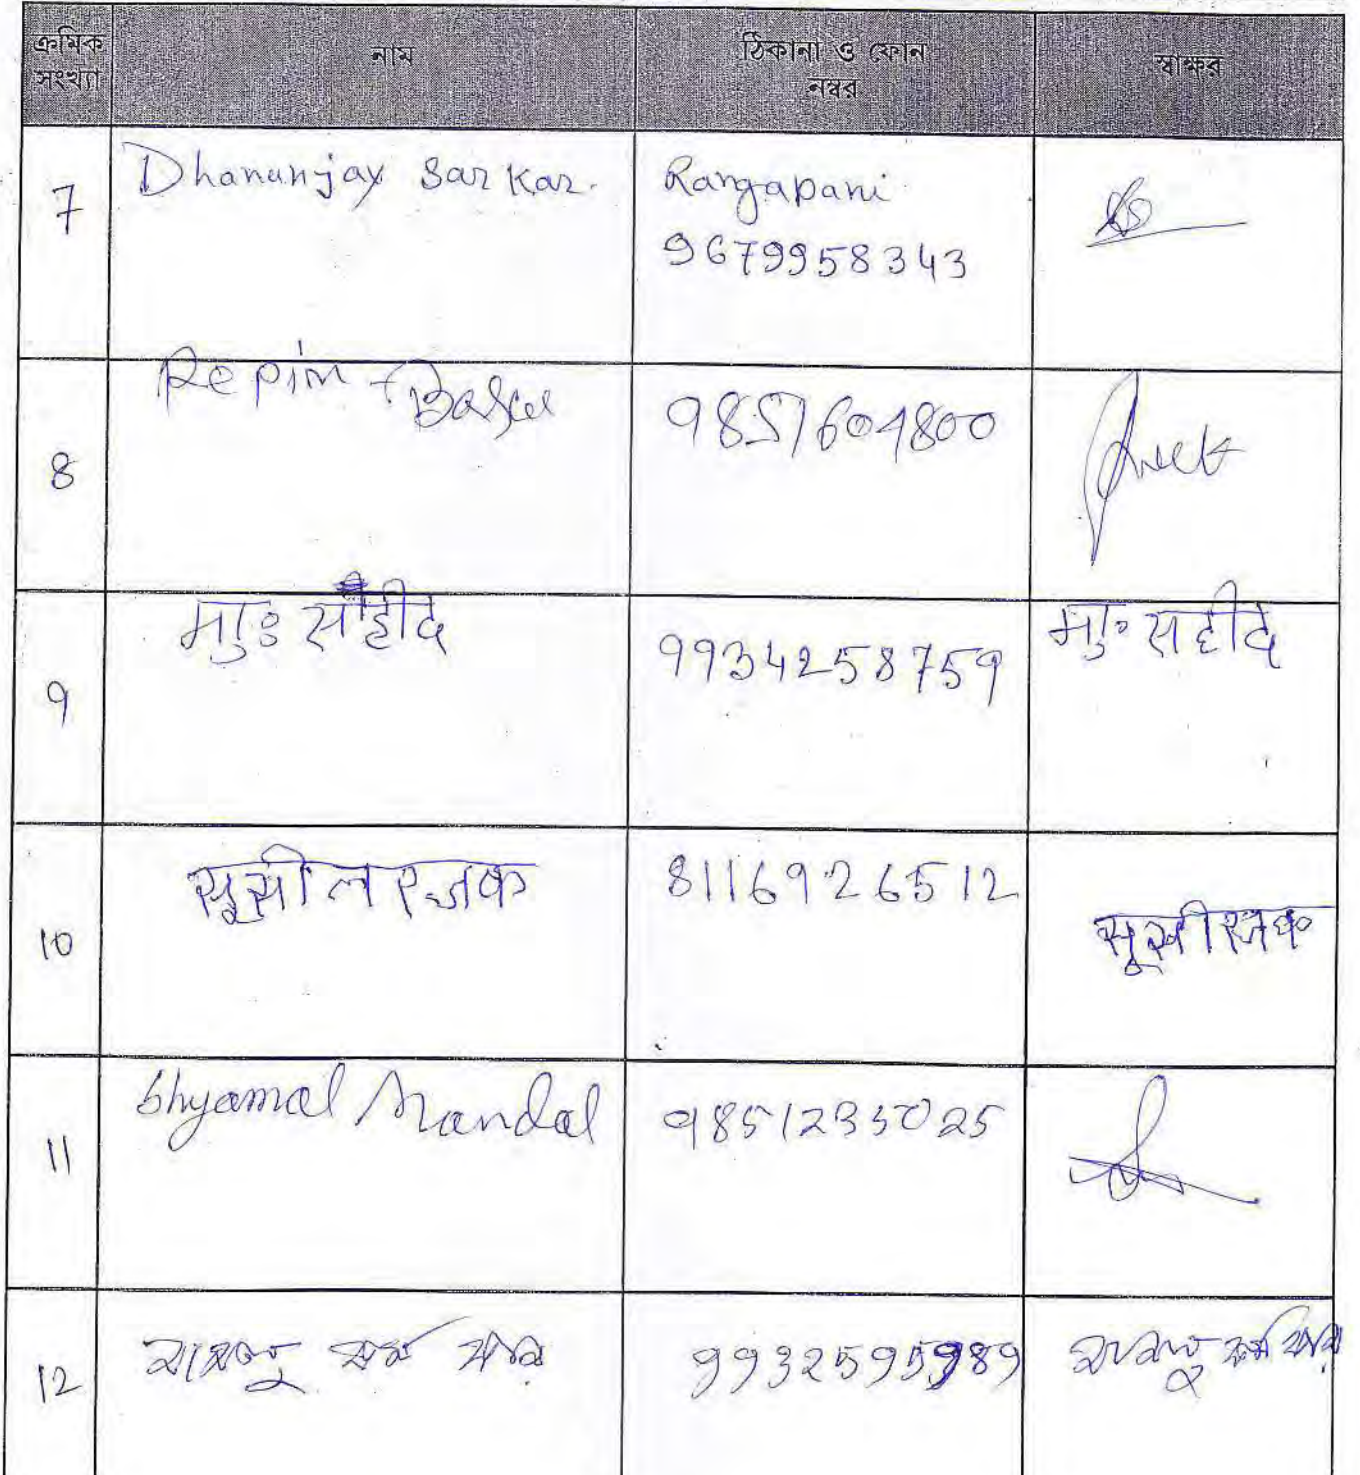 ক্রমিক সংখ্যা নাম ঠিকানা ও ফোন নম্বর স্বাক্ষর
7 Dhananjay Sarkar. Rangapani
9679958343
8 Repim Baske 9851604800
9 मुः सहीद 9934258759 मुः सहीद
10 सूसील रजक 8116926512 सूसील रजक
11 Shyamal Mandal 9851233025
12 কর্মকার 9932595989 কর্মকার